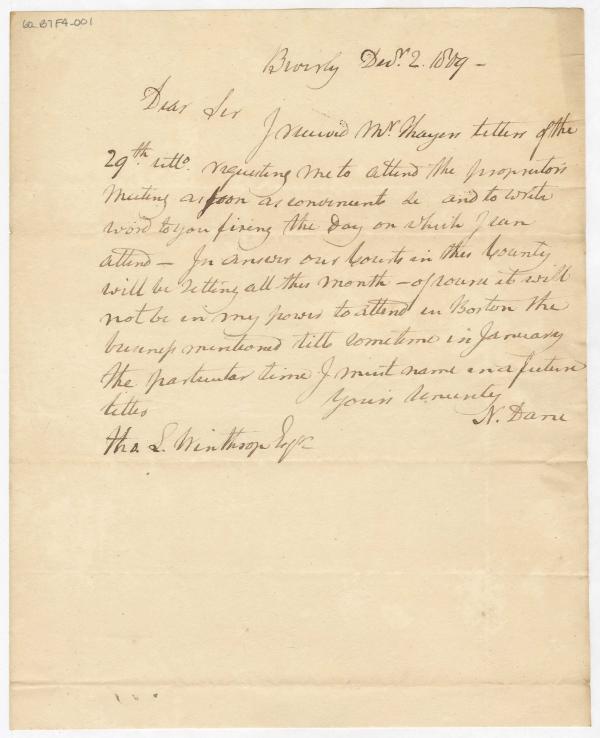 60.B7F4.001
Beverly Decr. 2. 1809 –
Dear Sir
I received Mr. Thayers letter of the
29th. ulto. requesting me to attend the proprietors
meeting as soon as convenient &c and to write
word to you fixing the Day on which I can
attend – In answer our Courts in this County
will be sitting all this month – of course it will
not be in my power to attend in Boston the
business mentioned till sometime in January
the particular time I must name in a future
letter Yours sincerely
N. Dane
Tho. L. Winthrop Esqr